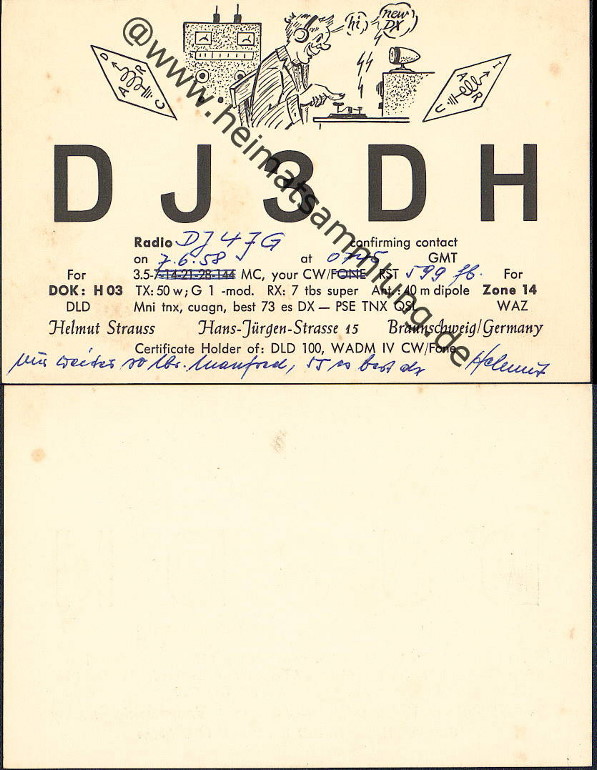 hi
new DX
D A R C
U A R I
DJ3DH
Radio DJ4JG confirming contact
on 7.6.58 at 0745 GMT
For 3.5-7-14-21-28-144 MC, your CW/FONE RST 599 fb. For
DOK: H 03 TX: 50 w; G 1 -mod. RX: 7 tbs super Ant.: 40 m dipole Zone 14
DLD Mni tnx, cuagn, best 73 es DX — PSE TNX QSL WAZ
Helmut Strauss Hans-Jürgen-Strasse 15 Braunschweig/Germany
Certificate Holder of: DLD 100, WADM IV CW/Fone
Nur weiter so lbr. Manfred, 55 es best dx Helmut
@www.heimatsammlung.de